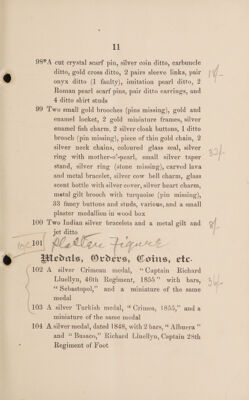 11
98*A cut crystal scarf pin, silver coin ditto, carbuncle
ditto, gold cross ditto, 2 pairs sleeve links, pair
onyx ditto (1 faulty), imitation pearl ditto, 2
Roman pearl scarf pins, pair ditto earrings, and
4 ditto shirt studs
99 Two small gold brooches (pins missing), gold and
enamel locket, 2 gold miniature frames, silver
enamel fish charm, 2 silver cloak buttons, 1 ditto
brooch (pin missing), piece of thin gold chain, 2
silver neck chains, coloured glass seal, silver
ring with mother-o'-pearl, small silver taper
stand, silver ring (stone missing), carved lava
and metal bracelet, silver cow bell charm, glass
scent bottle with silver cover, silver heart charm,
metal gilt brooch with turquoise (pin missing),
33 fancy buttons and studs, various, and a small
plaster medallion in wood box
100 Two Indian silver bracelets and a metal gilt and
jet ditto
101 Plaster Figure
Medals, Orders, Coins, etc.
102 A silver Crimean medal, "Captain Richard
Lluellyn, 46th Regiment, 1855" with bars,
"Sebastopol," and a miniature of the same
medal
103 A silver Turkish medal, "Crimea, 1855," and a
miniature of the same medal
104 A silver medal, dated 1848, with 2 bars, "Albuera"
and "Busaco," Richard Lluellyn, Captain 28th
Regiment of Foot